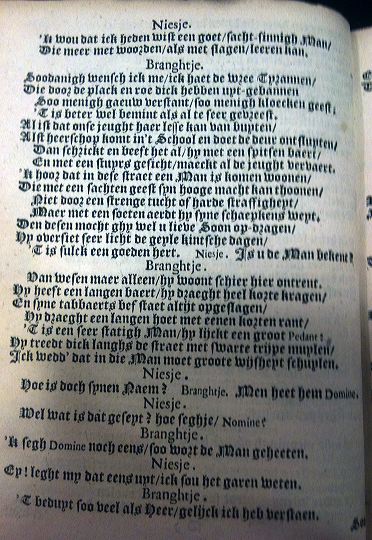 Niesje.
'K wou dat ick heden wist een goet/sacht-sinnigh Man/
Die meer met woorden/als met slagen/leeren kan.
Branghtje.
Soodanigh wensch ick me/ick haet de wree Tyrannen/
Die door de plack en roe dick hebben uyt-gebannen
Soo menigh gaeuw verstant/soo menigh kloecken geest;
'T is beter wel bemint als al te seer gevreest.
Al ist dat onse jeught haer lesse kan van buyten/
Alst heerschop komt in't School en doet de deur ontsluyten/
Dan schrickt en beeft het al/hy met een spitsen baert/
En met een stuyrs gesicht/maeckt al de jeught vervaert.
'K hoor dat in dese straet een Man is komen woonen/
Die met een sachten geest syn hooge macht kan thoonen/
Niet door een strenge tucht of harde straffigheyt/
Maer met een soeten aerdt hy syne schaepkens weyt.
Den desen mocht ghy wel u lieve Soon op-dragen/
Hy oversiet seer licht de geyle kintsche dagen/
'T is sulck een goeden hert. Niesje. Is u de Man bekent?
Branghtje.
Van wesen maer alleen/hy woont schier hier ontrent.
Hy heeft een langen baert/hy draeght heel korte kragen/
En syne tabbaerts bef staet altijt opgeslagen/
Hy draeght een langen hoet met eenen korten rant/
'T is een seer statigh Man/hy lijckt een groot Pedant:
Hy treedt dick langhs de straet met swarte trijpe muylen/
Ick wedd' dat in die Man moet groote wijsheyt schuylen.
Niesje.
Hoe is doch synen Naem? Branghtje. Men heet hem Domine.
Niesje.
Wel wat is dat geseyt? hoe seghje/ Nomine?
Branghtje.
'K segh Domine noch eens/soo wort de Man geheeten.
Niesje.
Ey! leght my dat eens uyt/ick sou het garen weten.
Branghtje.
'T beduyt soo veel als Heer/gelijck ick heb verstaen.